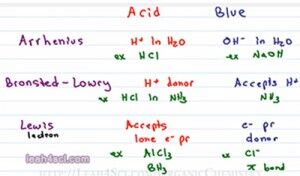 Acid Blue
Arrhenius H⁺ in H₂O OH⁻ in H₂O
ex HCl ex NaOH
Bronsted-Lowry H⁺ donor Accepts H⁺
ex HCl in NH₃ NH₃
Lewis Accepts e⁻ pr
lone e⁻ pr donor
ex AlCl₃ ex Cl⁻
BH₃ π bond
leah4sci.com